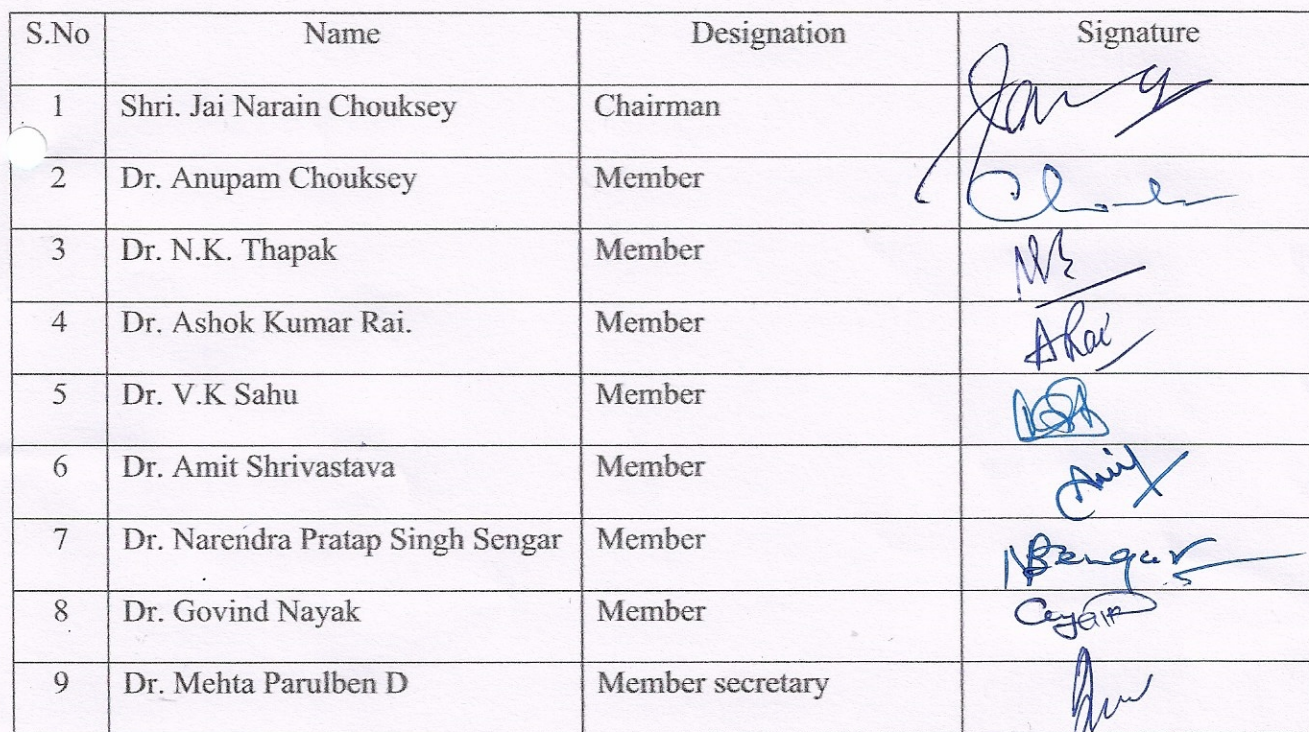 S.No Name Designation Signature
1 Shri. Jai Narain Chouksey Chairman
2 Dr. Anupam Chouksey Member
3 Dr. N.K. Thapak Member
4 Dr. Ashok Kumar Rai. Member ARai
5 Dr. V.K Sahu Member
6 Dr. Amit Shrivastava Member Amit
7 Dr. Narendra Pratap Singh Sengar Member NSengar
8 Dr. Govind Nayak Member
9 Dr. Mehta Parulben D Member secretary